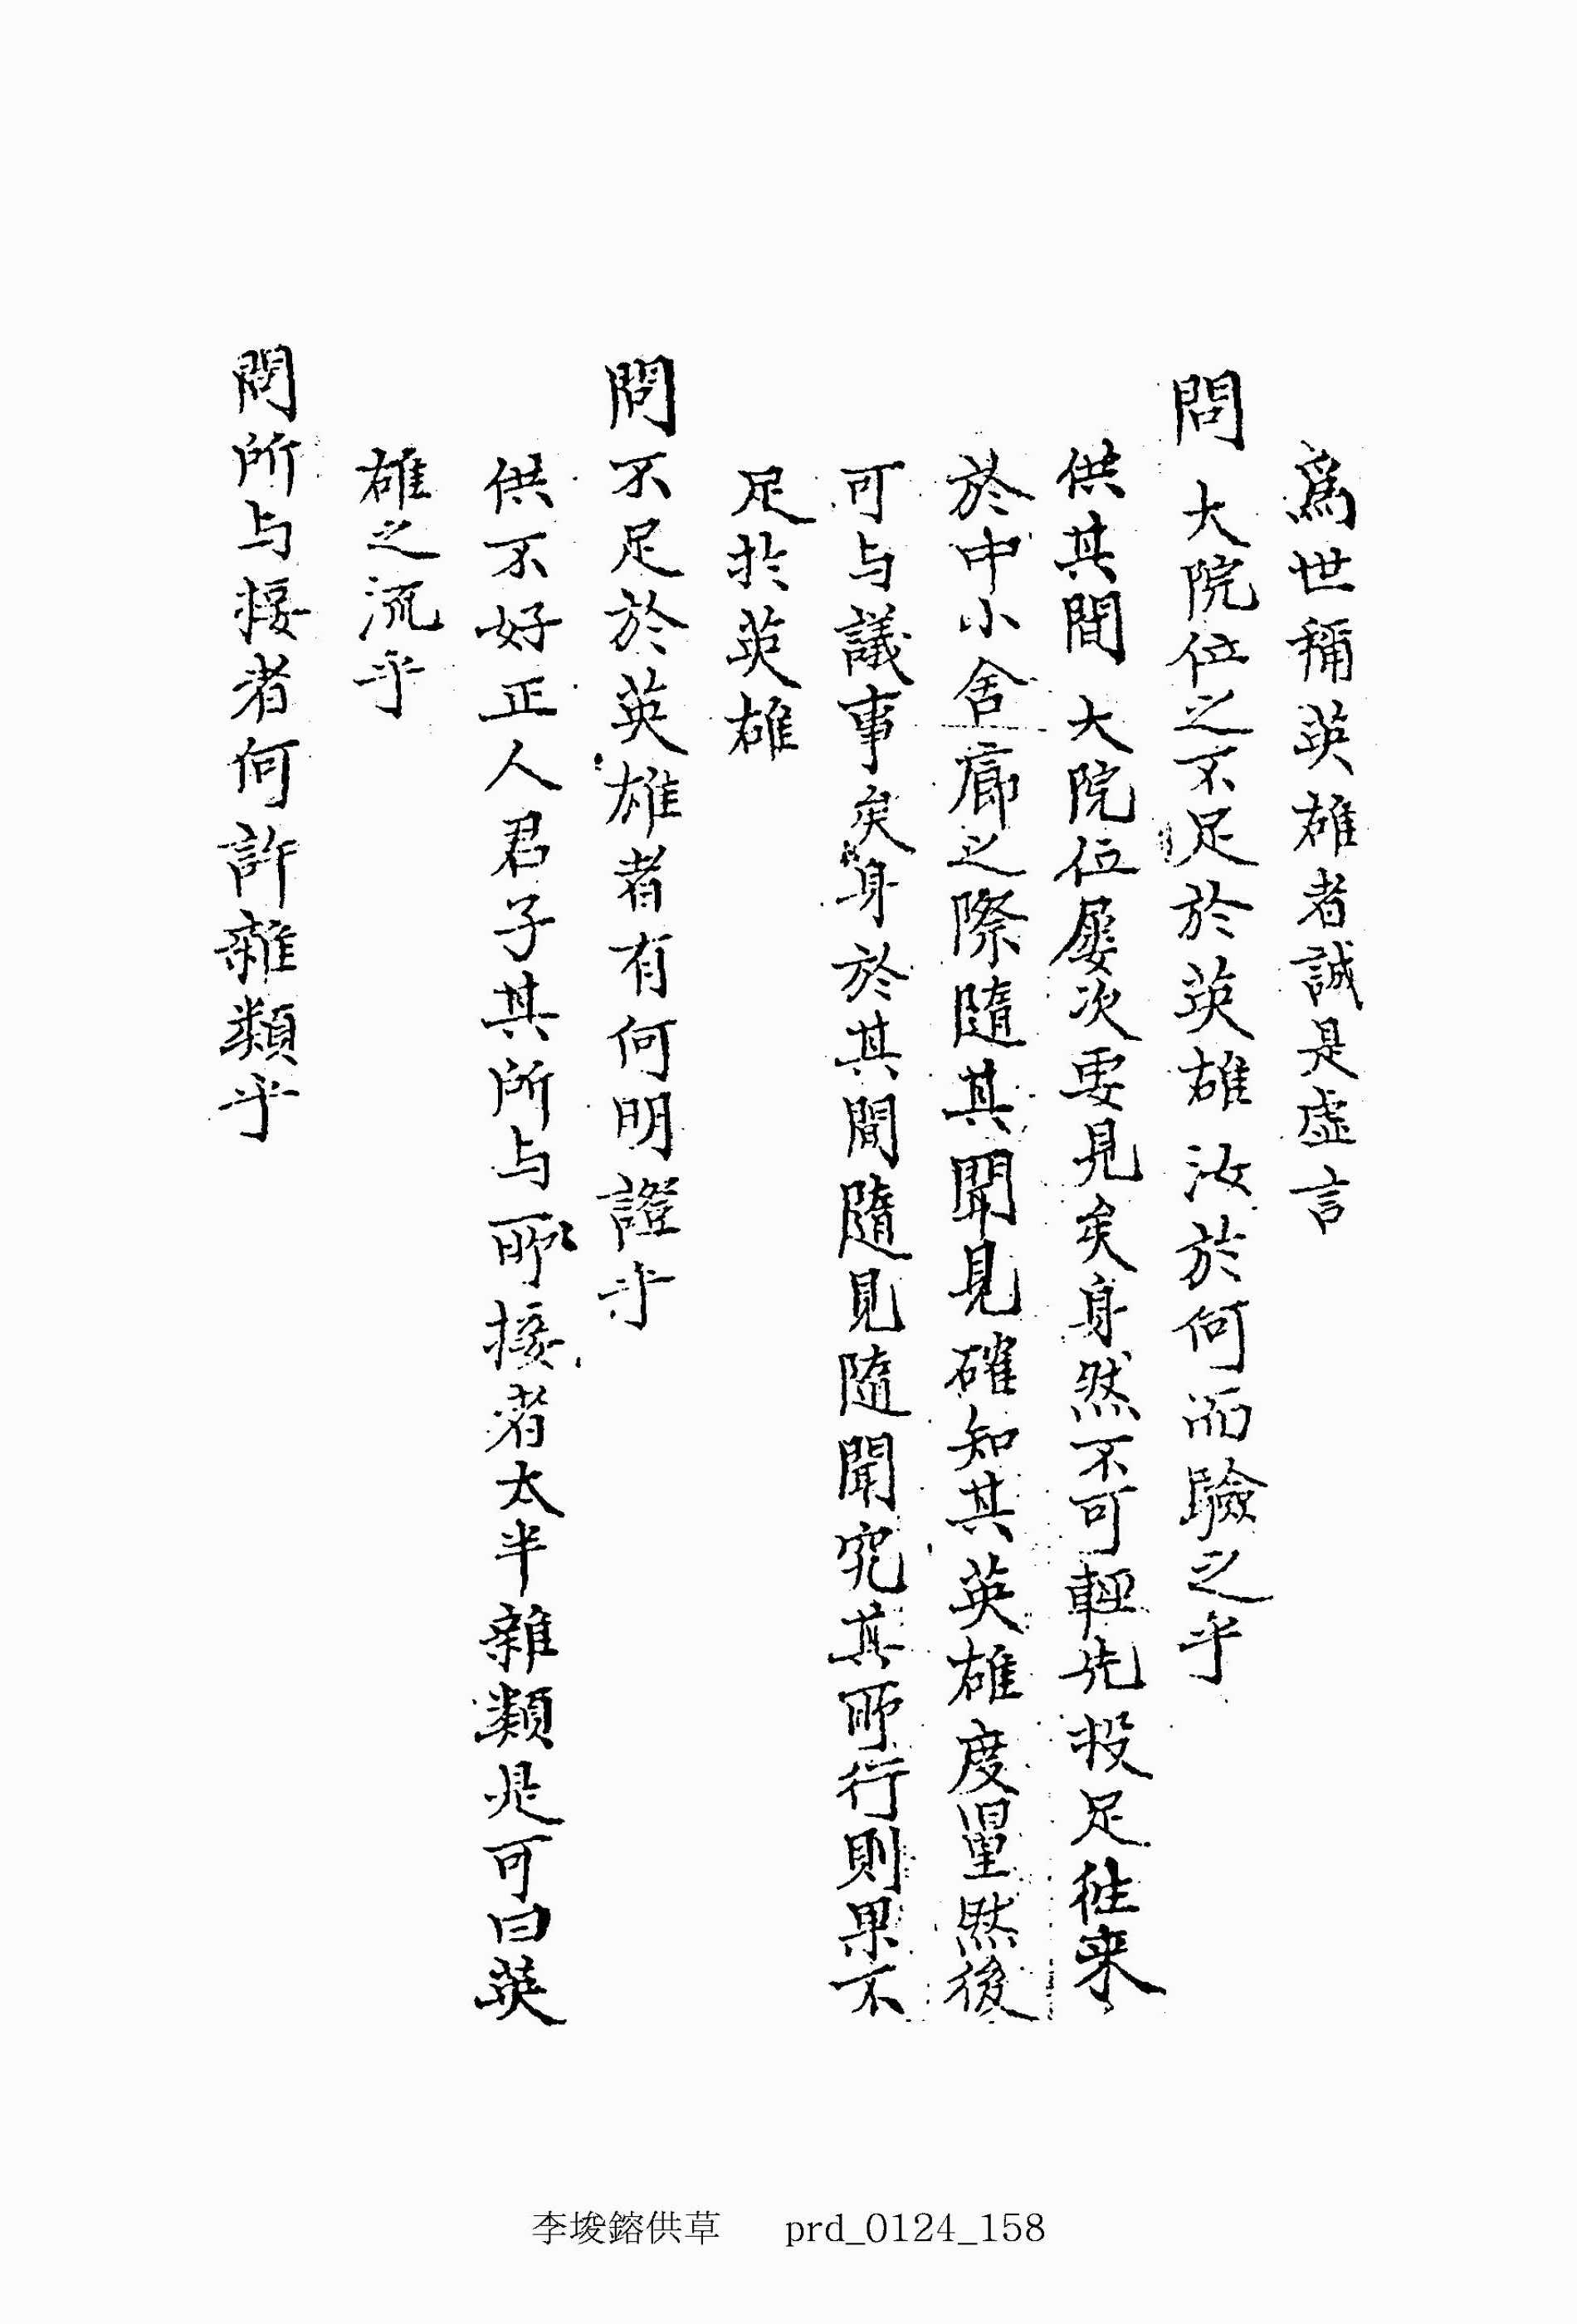 爲世稱英雄者誠是虛言
問 大院位之不足於英雄汝於何而驗之乎
供其間 大院位屢次要見矣身然不可輕先投足徃来
於中小舍廊之際隨其聞見確知其英雄度量然後
可与議事矣身於其間隨見隨聞究其所行則果不
足於英雄
問不足於英雄者有何明證乎
供不好正人君子其所与所接者太半雜類是可曰英
雄之流乎
問所与接者何許雜類乎
李埈鎔供草 prd_0124_158